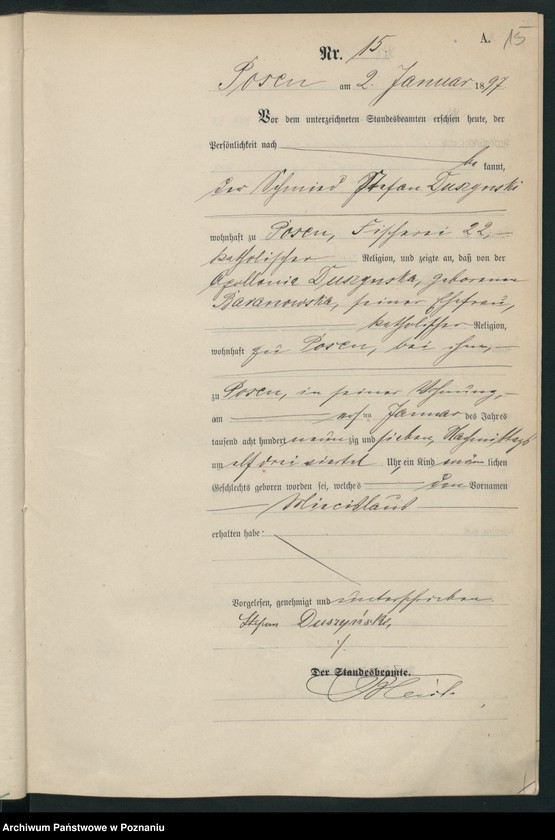 A. 15
Nr. 15
Posen am 2. Januar 1897
Vor dem unterzeichneten Standesbeamten erschien heute, der
Persönlichkeit nach
be kannt,
der Schmied Stefan Duszynski
wohnhaft zu Posen, Fischerei 22,
katholischer Religion, und zeigte an, daß von der
Apollonia Duszynska, geborenen
seiner Ehefrau,
katholischer Religion,
wohnhaft zu Posen, bei ihm,
zu Posen, in seiner Wohnung,
am ersten Januar des Jahres
tausend acht hundert neun zig und sieben, Nachmittags
um elf drei viertel Uhr ein Kind männ lichen
Geschlechts geboren worden sei, welches den Vornamen
Miecislaus
erhalten habe:
Vorgelesen, genehmigt und unterschrieben
Stefan Duszyński
Der Standesbeamte.
Archiwum Państwowe w Poznaniu